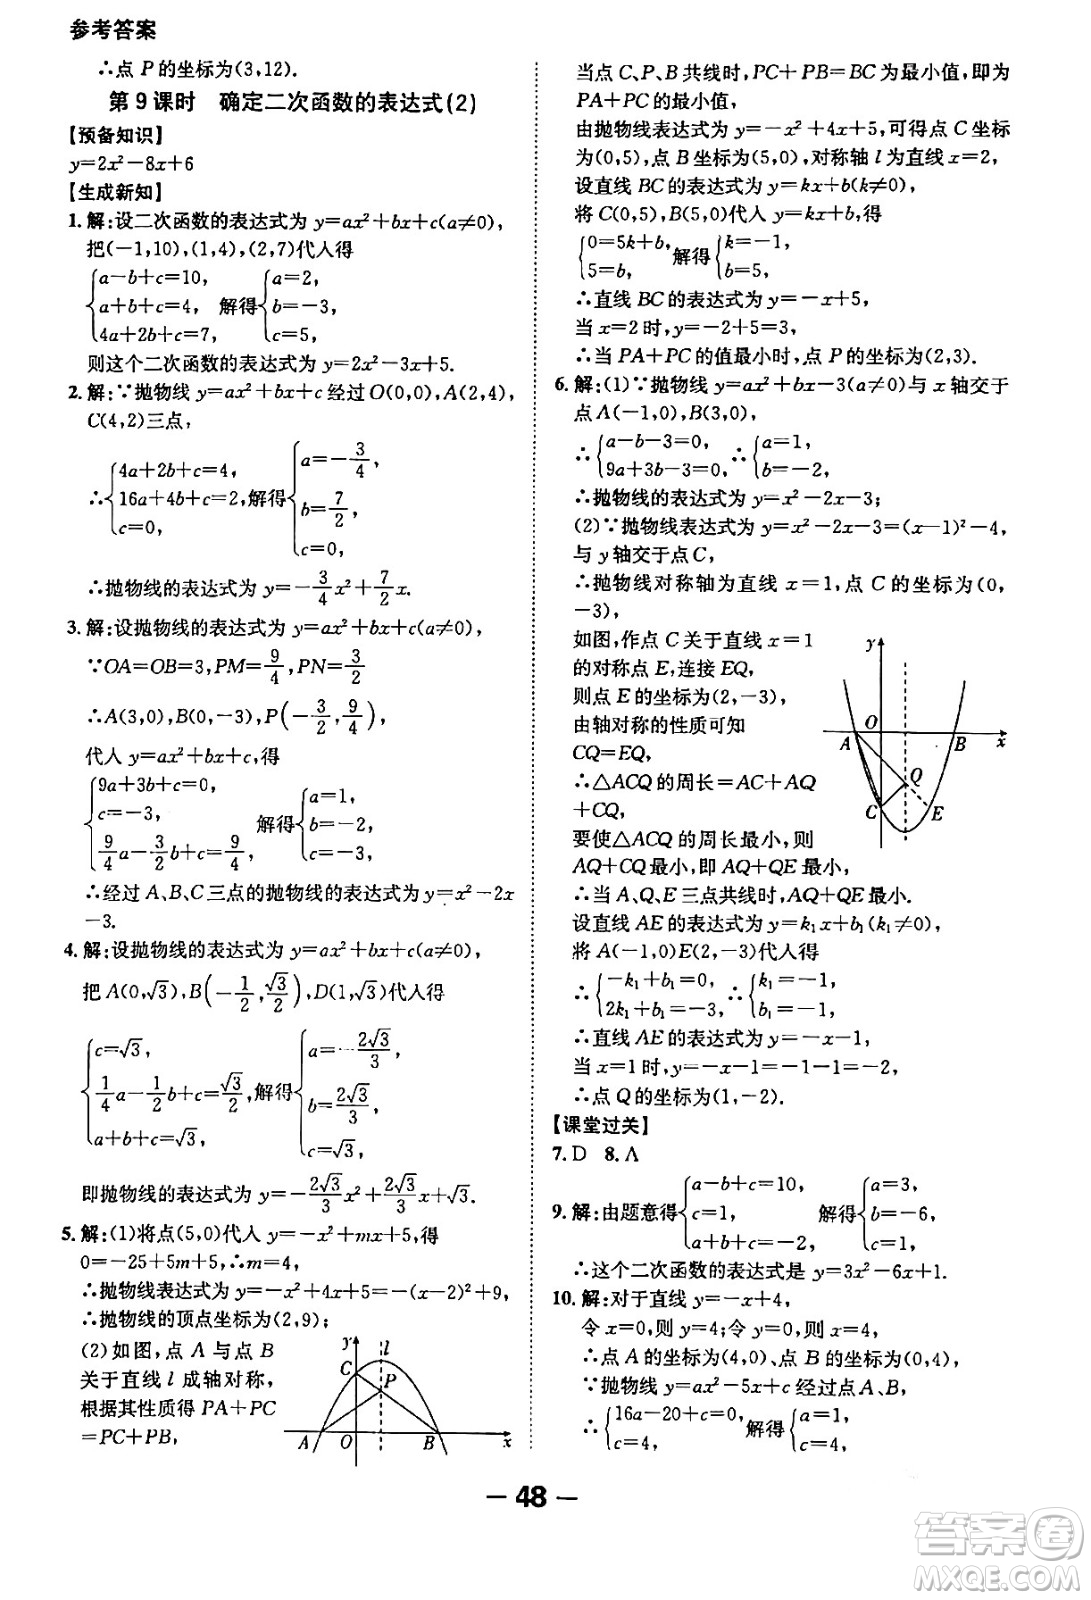 参考答案
∴点 P 的坐标为(3,12).
第 9 课时 确定二次函数的表达式(2)
【预备知识】
y=2x²-8x+6
【生成新知】
1. 解:设二次函数的表达式为 y=ax²+bx+c(a≠0),
把(-1,10),(1,4),(2,7)代入得
{a-b+c=10, a+b+c=4, 4a+2b+c=7, 解得{a=2, b=-3, c=5,
则这个二次函数的表达式为 y=2x²-3x+5.
2. 解:∵抛物线 y=ax²+bx+c 经过 O(0,0),A(2,4),
C(4,2)三点,
∴{4a+2b+c=4, 16a+4b+c=2, c=0, 解得{a=-3/4, b=7/2, c=0,
∴抛物线的表达式为 y=-3/4x²+7/2x.
3. 解:设抛物线的表达式为 y=ax²+bx+c(a≠0),
∵OA=OB=3,PM=9/4,PN=3/2
∴A(3,0),B(0,-3),P(-3/2,9/4)
代入 y=ax²+bx+c(a≠0),得
{9a+3b+c=0, c=-3, 9/4a-3/2b+c=9/4 解得{a=1, b=-2, c=-3,
∴经过 A、B、C 三点的抛物线的表达式为 y=x²-2x
-3.
4. 解:设抛物线的表达式为 y=ax²+bx+c(a≠0),
把 A(0,√3),B(-1/2,√3/2),D(1,√3)代入得
{c=√3, 1/4a-1/2b+c=√3/2, a+b+c=√3, 解得{a=-2√3/3, b=2√3/3, c=√3,
即抛物线的表达式为 y=-2√3/3x²+2√3/3x+√3.
5. 解:(1)将点(5,0)代入 y=-x²+mx+5,得
0=-25+5m+5,∴m=4,
∴抛物线表达式为 y=-x²+4x+5=-(x-2)²+9,
∴抛物线的顶点坐标为(2,9);
(2)如图,点 A 与点 B
关于直线 l 成轴对称,
根据其性质得 PA+PC
=PC+PB,
y
l
C
P
A
O
B
x
当点 C、P、B 共线时,PC+PB=BC 为最小值,即为
PA+PC 的最小值,
由抛物线表达式为 y=-x²+4x+5,可得点 C 坐标
为(0,5),点 B 坐标为(5,0),对称轴 l 为直线 x=2,
设直线 BC 的表达式为 y=kx+b(k≠0),
将 C(0,5),B(5,0)代入 y=kx+b,得
{0=5k+b, 5=b, 解得{k=-1, b=5,
∴直线 BC 的表达式为 y=-x+5,
当 x=2 时,y=-2+5=3,
∴当 PA+PC 的值最小时,点 P 的坐标为(2,3).
6. 解:(1)∵抛物线 y=ax²+bx-3(a≠0)与 x 轴交于
点 A(-1,0),B(3,0),
∴{a-b-3=0, 9a+3b-3=0, ∴{a=1, b=-2,
∴抛物线的表达式为 y=x²-2x-3;
(2)∵抛物线表达式为 y=x²-2x-3=(x-1)²-4,
与 y 轴交于点 C,
∴抛物线对称轴为直线 x=1,点 C 的坐标为(0,
-3),
如图,作点 C 关于直线 x=1
的对称点 E,连接 EQ,
则点 E 的坐标为(2,-3),
由轴对称的性质可知
CQ=EQ,
∴△ACQ 的周长=AC+AQ
+CQ,
要使△ACQ 的周长最小,则
AQ+CQ 最小,即 AQ+QE 最小,
y
O
A
B
x
Q
C
E
∴当 A、Q、E 三点共线时,AQ+QE 最小.
设直线 AE 的表达式为 y=k₁x+b₁(k₁≠0),
将 A(-1,0)E(2,-3)代入得
∴{-k₁+b₁=0, 2k₁+b₁=-3, ∴{k₁=-1, b₁=-1,
∴直线 AE 的表达式为 y=-x-1,
当 x=1 时,y=-x-1=-1-1=-2,
∴点 Q 的坐标为(1,-2).
【课堂过关】
7. D 8. A
9. 解:由题意得{a-b+c=10, a+b+c=-2, c=1, 解得{a=3, b=-6, c=1,
∴这个二次函数的表达式是 y=3x²-6x+1.
10. 解:对于直线 y=-x+4,
令 x=0,则 y=4;令 y=0,则 x=4,
∴点 A 的坐标为(4,0),点 B 的坐标为(0,4),
∵抛物线 y=ax²-5x+c 经过点 A、B,
∴{16a-20+c=0, c=4, 解得{a=1, c=4,
- 48 -
答案圈
MXQE.COM